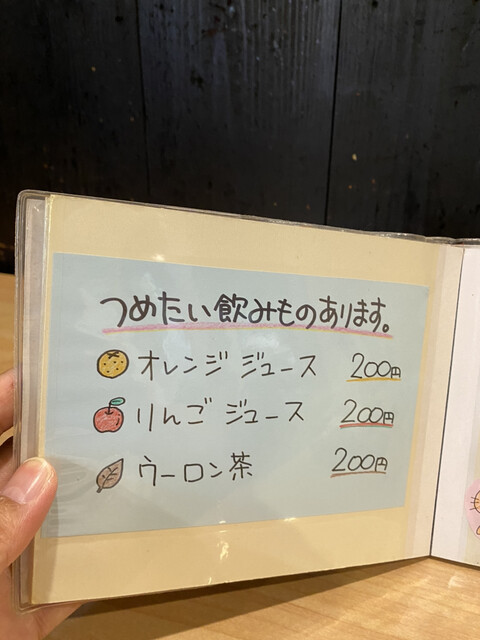 つめたい飲みものあります。
オレンジジュース 200円
りんごジュース 200円
ウーロン茶 200円